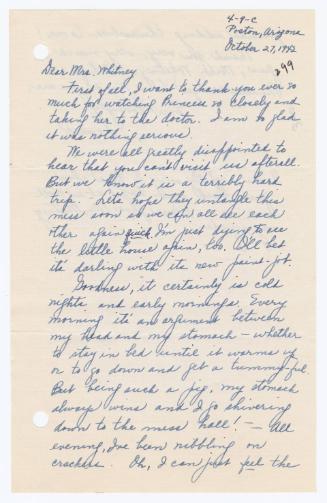 4-9-C
Poston, Arizona
October 27, 1942
299
Dear Mrs. Whitney
First of all, I want to thank you ever so
much for watching Princess so closely and
taking her to the doctor. I am so glad
it was nothing serious.
We were all greatly disappointed to
hear that you can't visit us afterall.
But we know it is a terribly hard
trip. Lets hope they untangle this
mess soon so we can all see each
other again quick. I'm just dying to see
the little house again, too. I'll bet
it's darling with its new paint-job.
Goodness, it certainly is cold
nights and early mornings. Every
morning it's an argument between
my head and my stomach – whether
to stay in bed until it warms up
or to go down and get a tummy-ful.
But being such a pig, my stomach
always wins and I go shivering
down to the mess hall! – All
evening, I've been nibbling on
crackers. Oh, I can just feel the